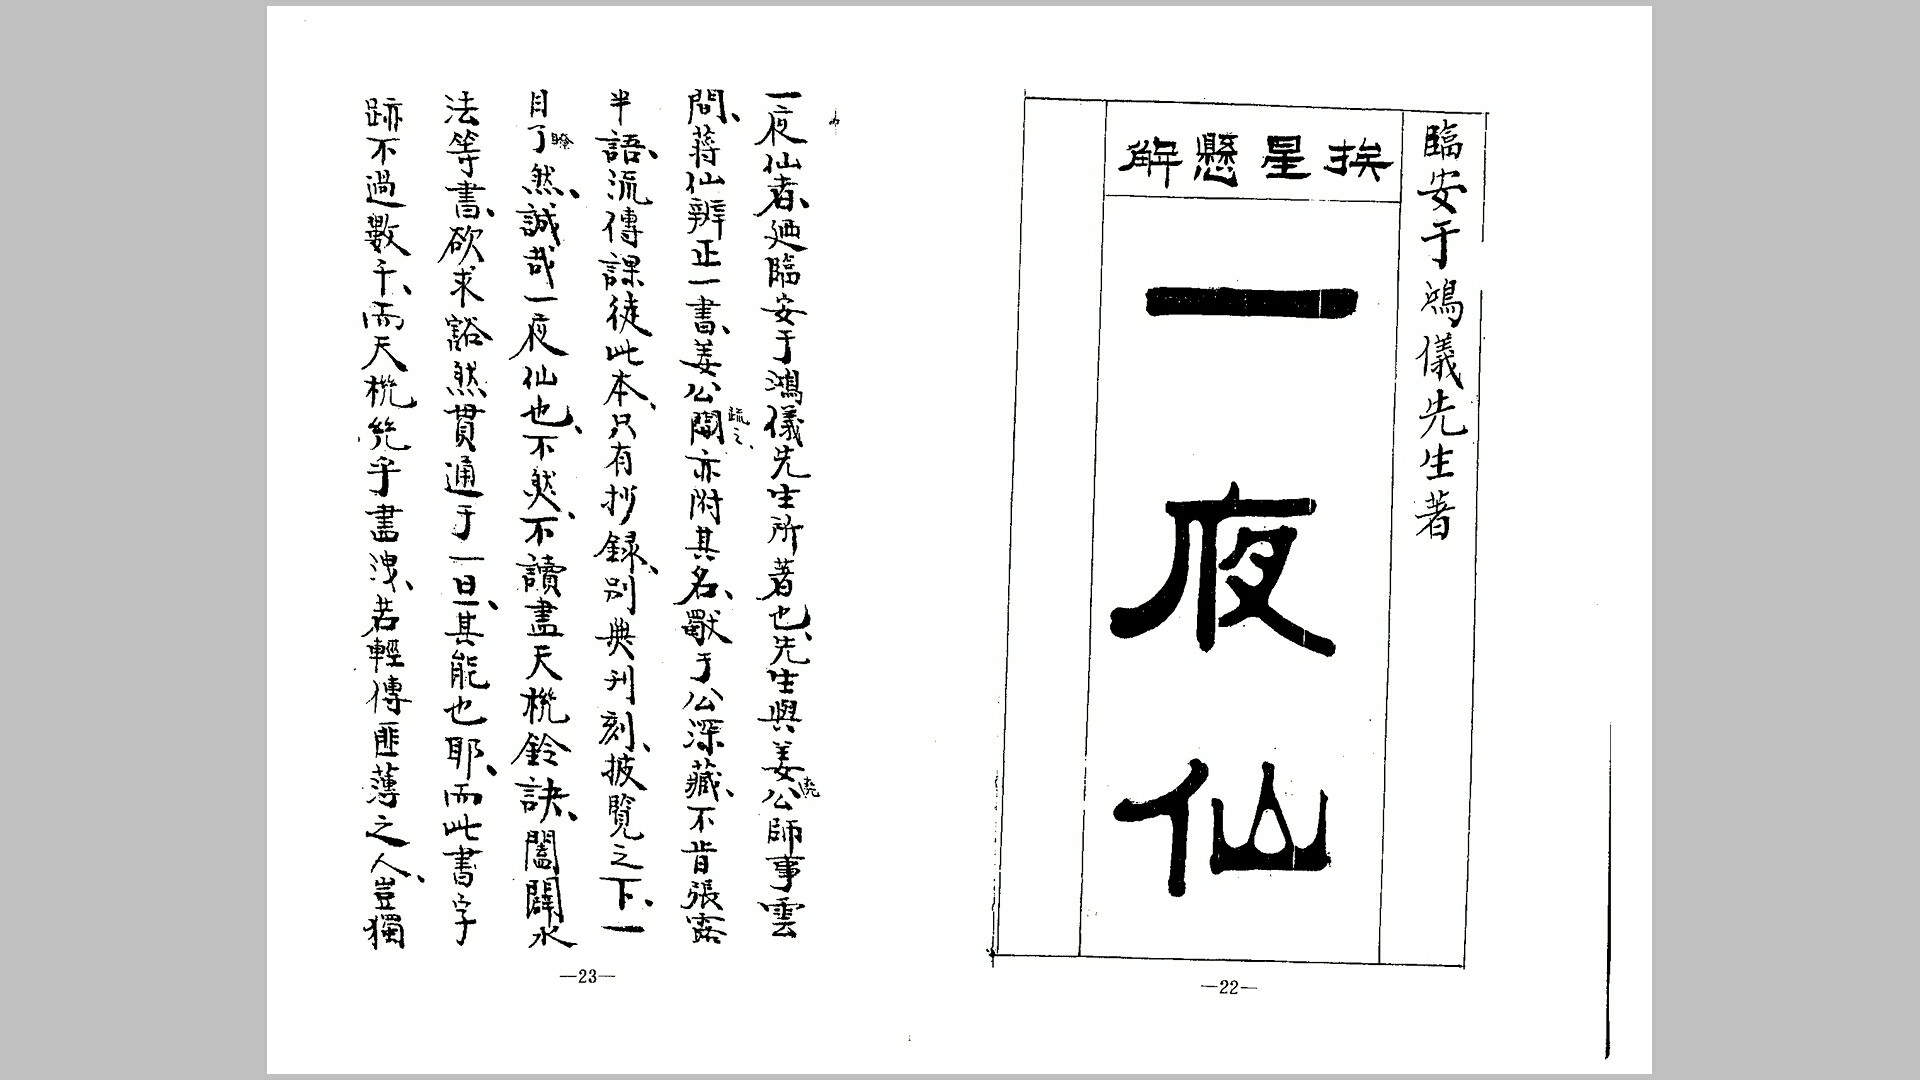 臨安于鴻儀先生著
挨星懸解
一夜仙
—22—
一夜仙者、廼臨安于鴻儀先生所著也、先生與姜公師事雲
問、蔣仙辨正一書、姜公闡亦附其名、獨于公深藏、不肯張露
疏之、
半語、流傳課徒此本、只有抄録、別無刊刻、披覽之下、一
目了然、誠哉一夜仙也、不然、不讀盡天機鈴訣、闔闢水
瞭
法等書、欲求豁然貫通于一旦、其能也耶、而此書字
跡不過數千、而天機幾乎盡洩、若輕傳匪薄之人、豈獨
—23—